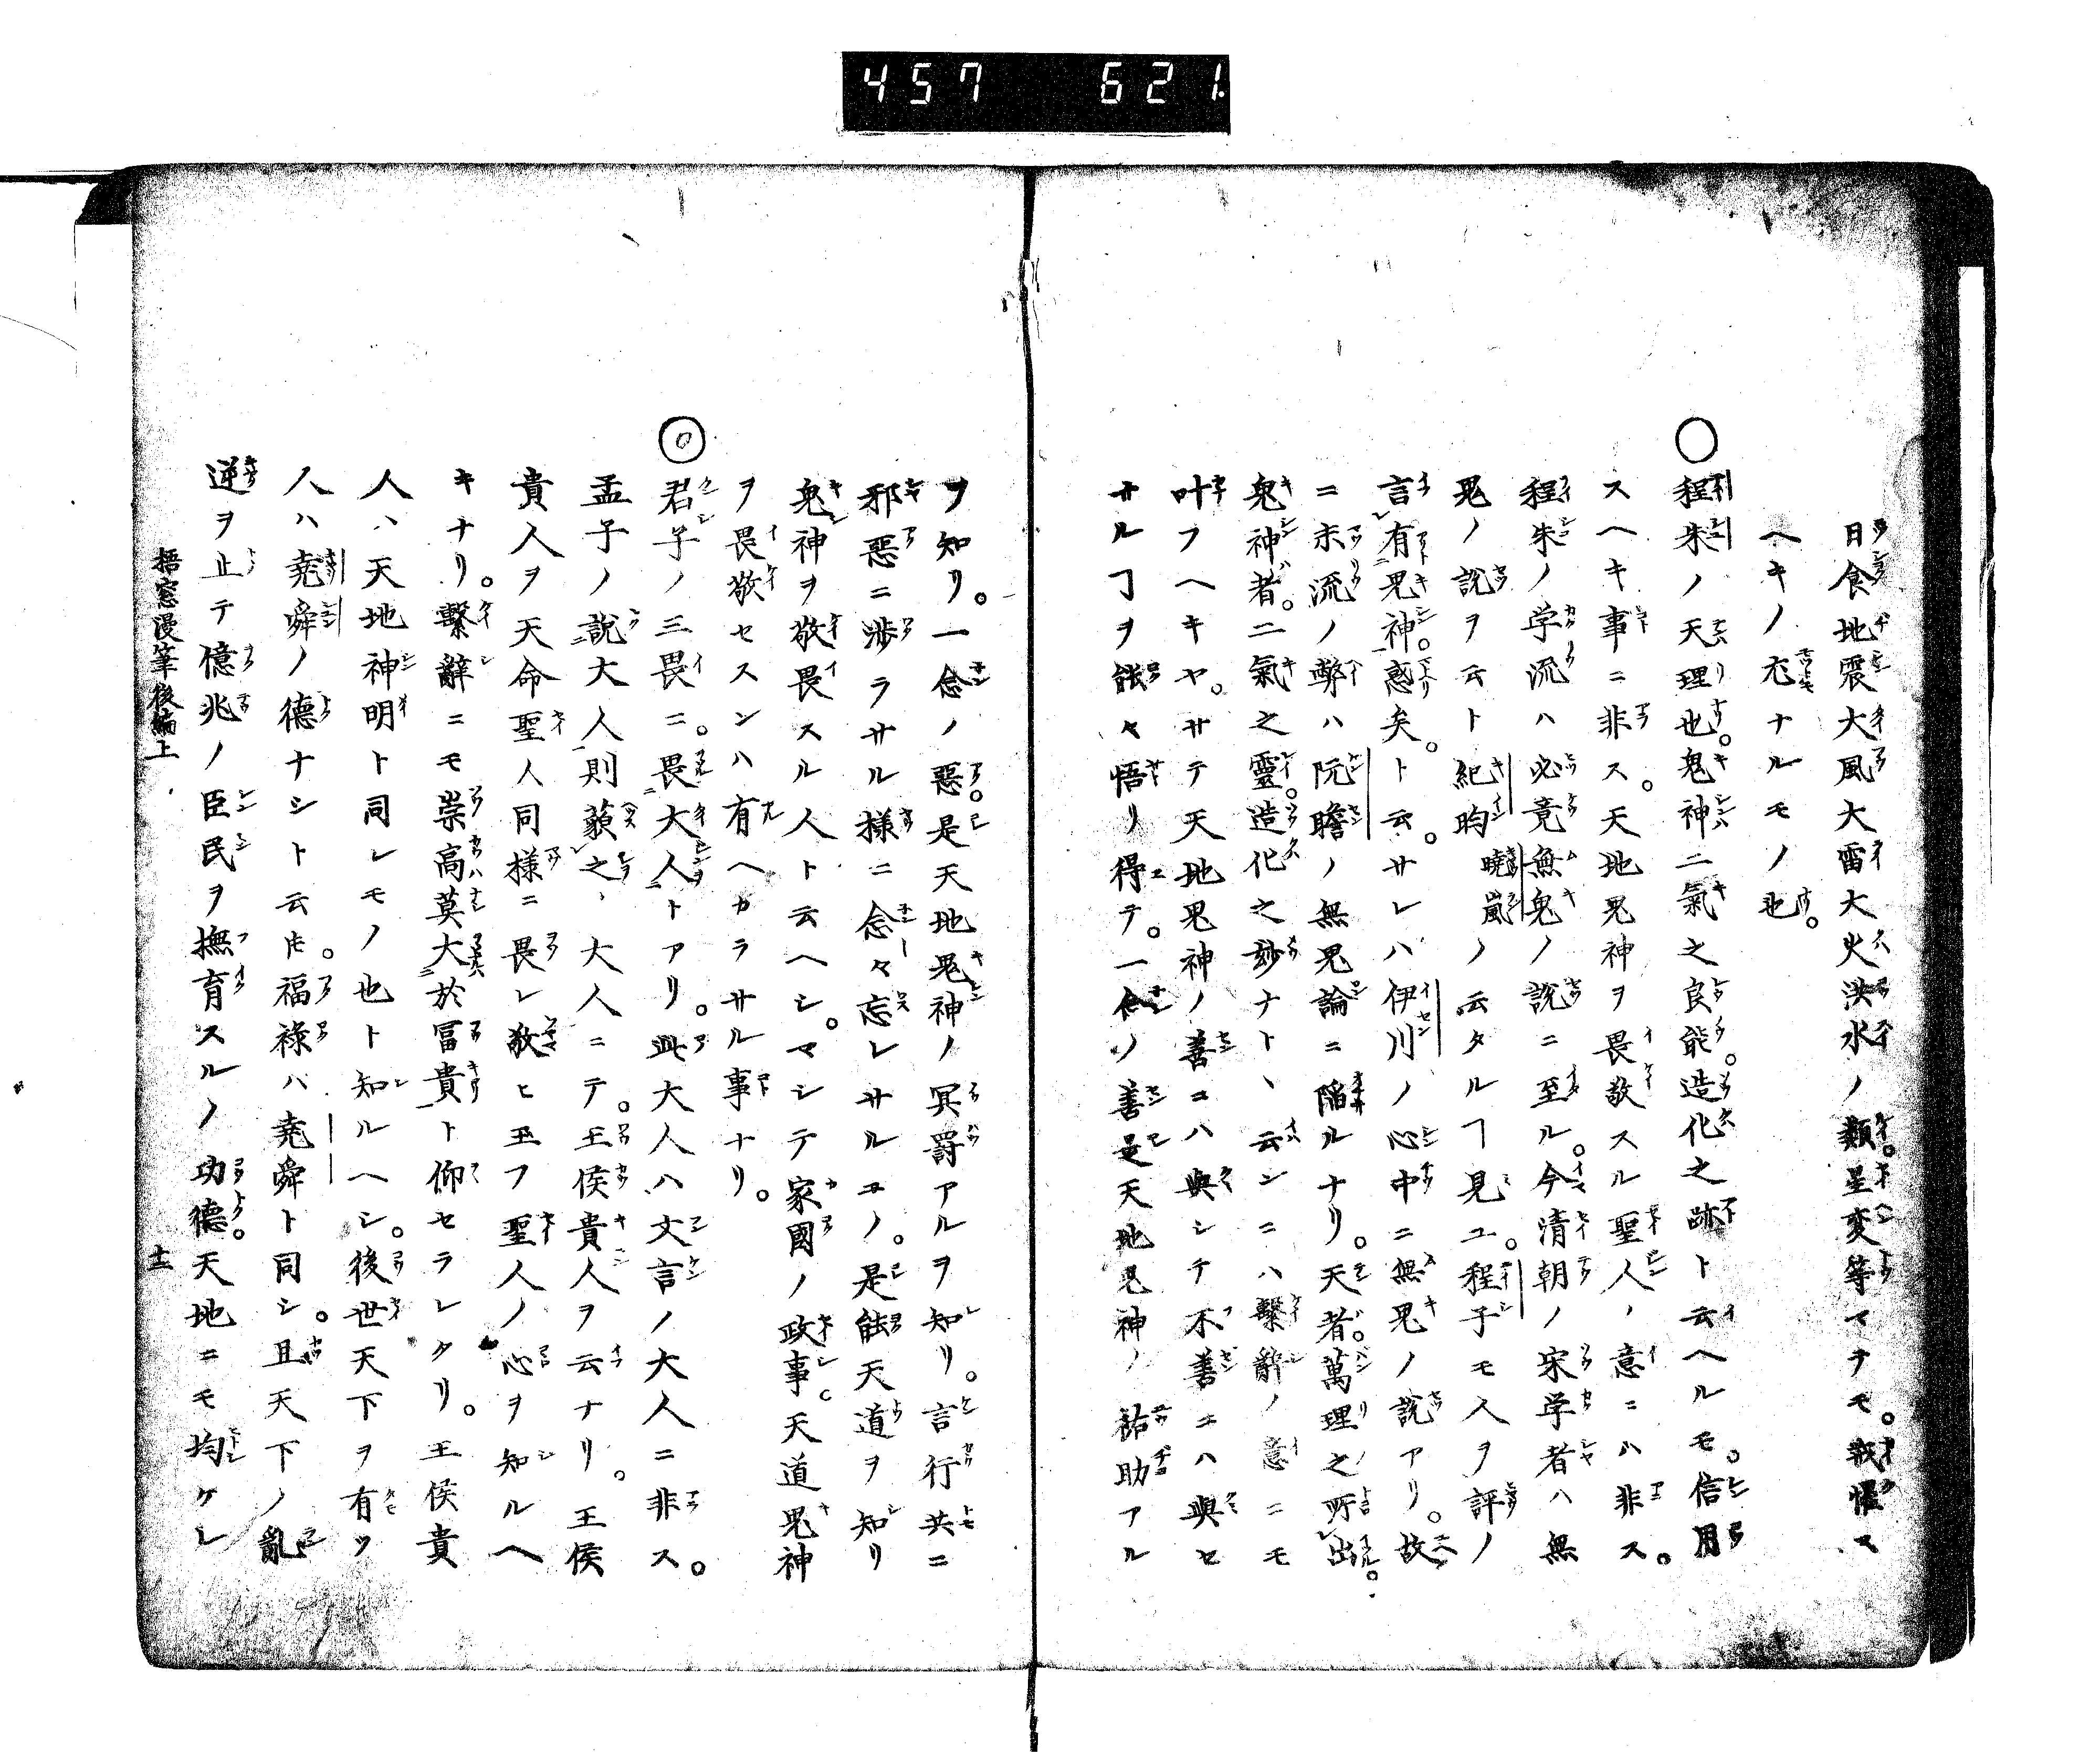 457 621
日食地震大風大雷大火洪水ノ類。星変等マテモ。戒懼ス
ヘキノ尤ナルモノ也。
○程朱ノ天理也。鬼神二氣之良能。造化之跡ト云ヘルモ。信用
スヘキ事ニ非ス。天地鬼神ヲ畏敬スル聖人ノ意ニハ非ス。
程朱ノ学流ハ必竟無鬼ノ説ニ至ル。今清朝ノ宋学者ハ無
鬼ノ説ヲ云ト紀昀曉嵐ノ云タルヿ見ユ。程子モ入ヲ評ノ
言有鬼神。惑矣。ト云。サレハ伊川ノ心中ニ無鬼ノ説アリ。故
ニ末流ノ弊ハ阮瞻ノ無鬼論ニ陥ルナリ。天者。萬理之所出。
鬼神者。二氣之靈。造化之妙ナト、云ンニハ繫辭ノ意ニモ
叶フヘキヤ。サテ天地鬼神ノ善ニハ與シテ不善ニハ與セ
サルヿヲ能々悟リ得テ。一念ノ善是天地鬼神ノ祐助アル
ヲ知リ。一念ノ惡。是天地鬼神ノ冥罰アルヲ知リ。言行共ニ
邪惡ニ渉ラサル様ニ念々忘レサルヿ。是能天道ヲ知リ
鬼神ヲ敬畏スル人ト云ヘシ。マシテ家國ノ政事。天道鬼神
ヲ畏敬セスンハ有ヘカラサル事ナリ。
◎君子ノ三畏ニ。畏大人トアリ。此大人ハ文言ノ大人ニ非ス。
孟子ノ説大人則藐之、大人ニテ。王侯貴人ヲ云ナリ。王侯
貴人ヲ天命聖人同様ニ畏レ敬ヒ玉フ聖人ノ心ヲ知ルヘ
キナリ。繫辭ニモ崇高莫大於冨貴ト仰セラレタリ。王侯貴
人ハ天地神明ト同レモノ也ト知ルヘシ。後世天下ヲ有ツ
人ハ堯舜ノ德ナシト云ㇳモ。福祿ハ堯舜ト同シ。且天下ノ亂
逆ヲ止テ億兆ノ臣民ヲ撫育スルノ功德。天地ニモ均ケレ
梧窓漫筆後編上 十二